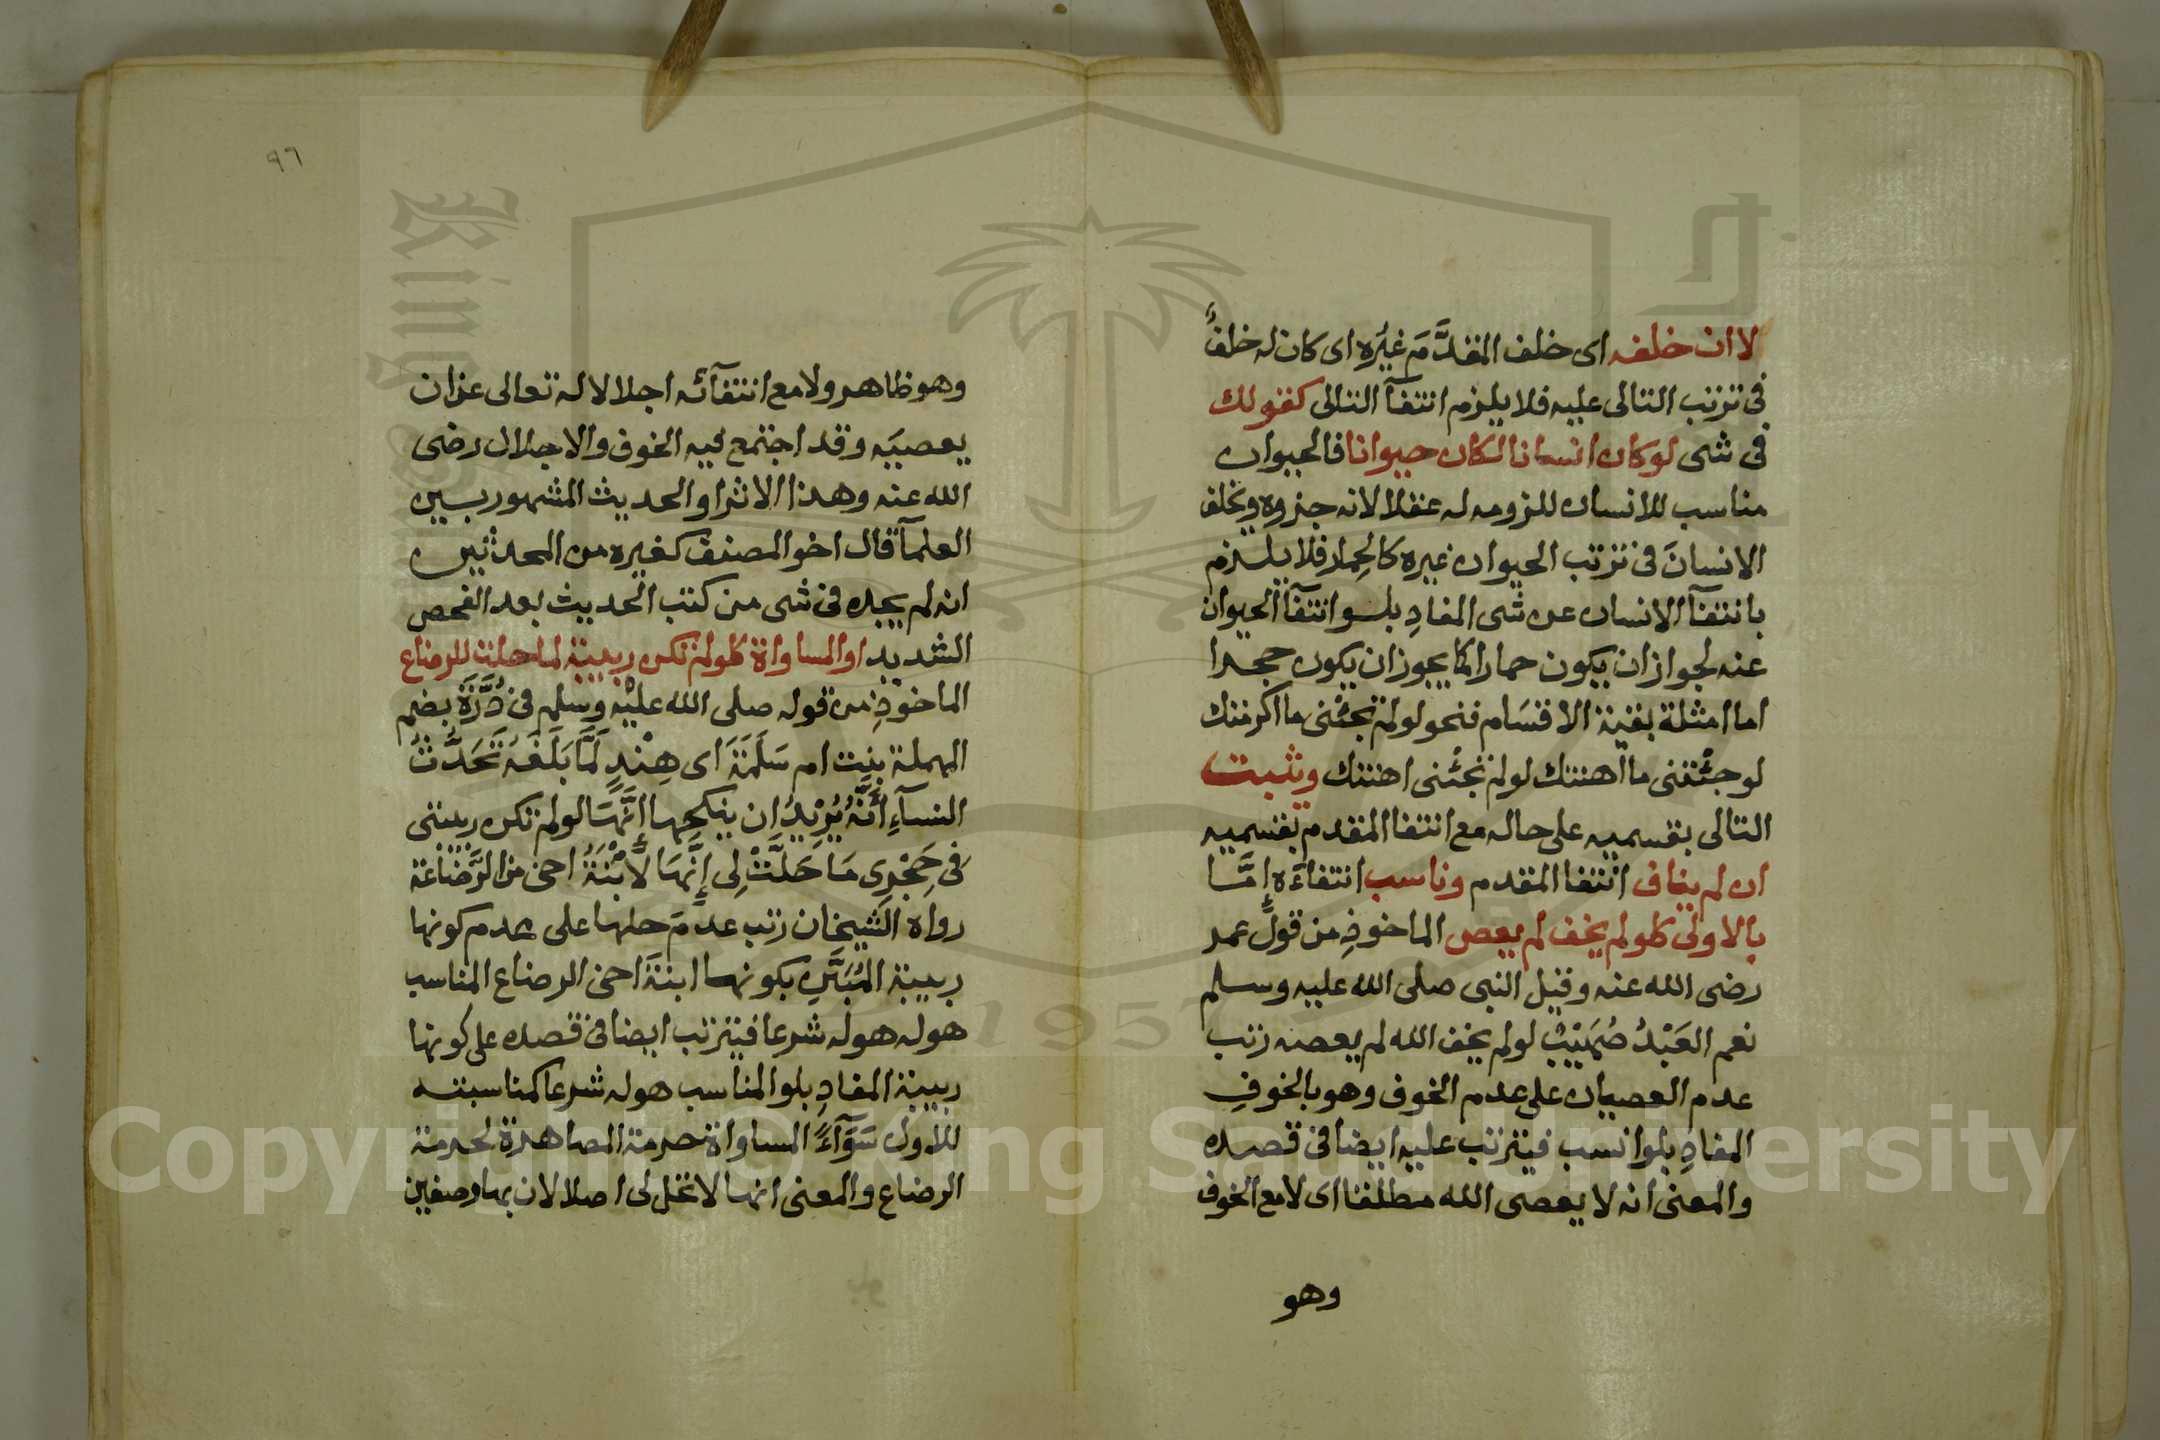 لا ان خلفه اى خلف المقدَّمَ غيرُه اى كان له خلفٌ
فى ترتب التالى عليه فلا يلزم انتفآ التالى كقولك
فى شى لو كان انسانا لكان حيوانا فالحيوان
مناسب للانسان للزومه له عقلا لانه جزوه ويخلف
الانسانَ فى ترتب الحيوان غيره كالحِمار فلا يلزم
بانتفآ الانسان عن شى المفادِ بلو انتفآ الحيوان
عنه لجواز ان يكون حمارا كما يجوز ان يكون حجرا
اما امثلة بقية الاقسام فنحو لو لم تجئنى ما اكرمتك
لو جئتنى ما اهنتك لو لم تجئنى اهنتك ويثبت
التالى بقسميه على حاله مع انتفا المقدم بقسميه
ان لم يناف انتفا المقدم وناسب انتفاءَه إمَّا
بالاولى كلو لم يخف لم يعص الماخوذِ من قول عمر
رضى الله عنه وقيل النبى صلى الله عليه وسلم
نعم العَبْدُ صُهَيْبٌ لو لم يخف الله لم يعصه رتب
عدم العصيان على عدم الخوف وهو بالخوفِ
المفادِ بلو انسب فيترتب عليه ايضا فى قصده
والمعنى انه لا يعصى الله مطلقا اى لا مع الخوف
وهو
٩٦
وهو ظاهر ولا مع انتفآئه اجلالا له تعالى عن ان
يعصيَه وقد اجتمع فيه الخوف والاجلال رضى
الله عنه وهذا الاثر او الحديث المشهور بين
العلمآ قال اخو المصنف كغيره من المحدثين
انه لم يجده فى شى من كتب الحديث بعد الفحص
الشديد او المساواة كلو لم تكن ربيبة لما حلت للرضاع
الماخوذِ من قوله صلى الله عليْه وسلم فى دُرَّةَ بضم
المهملة بنت ام سَلَمَةَ اى هِنْدٍ لَمَّا بَلَغَهُ تَحَدُّثُ
النسآءِ أَنَّهُ يُرِيْدُ ان ينكحها إِنَّهَا لو لم تكن ربيبتى
فى حِجْرِى مَا حَلَّتْ لِى إِنَّهَا لَابْنَةُ اخى من الرَّضَاعَة
رواه الشيخان رتب عدمَ حلها على عدم كونها
ربيبة المُبَيَّنِ بكونها ابنةَ اخى الرضاع المناسب
هو له هوله شرعا فيترتب ايضا فى قصده على كونها
ربيبة المفادِ بلو المناسب هو له شرعا كمناسبته
للاول سَوَآءً المساواة حرمة المصاهرة لحرمة
الرضاع والمعنى انها لا تحل لى اصلا لان بها وصفين
King Saud University
1957
Copyright © King Saud University